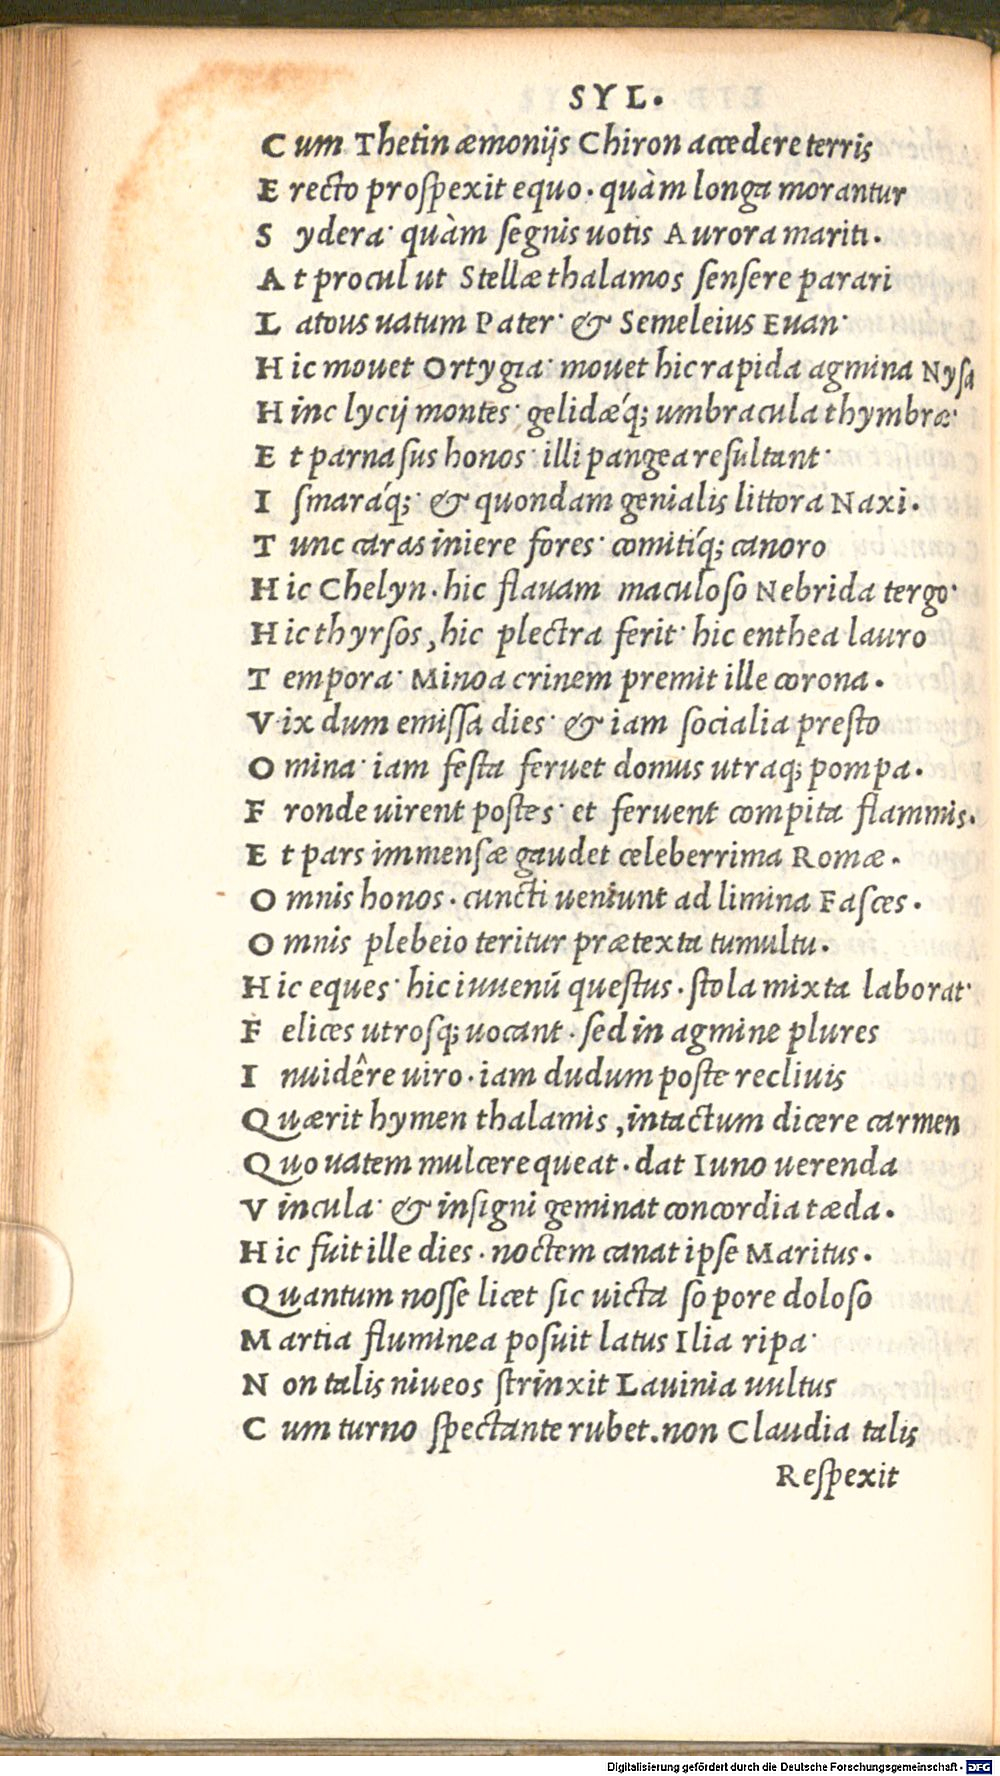 SYL.
Cum Thetin æmonijs Chiron accedere terris
Erecto prospexit equo. quàm longa morantur
Sydera· quàm segnis uotis Aurora mariti.
At procul ut Stellæ thalamos sensere parari
Latous uatum Pater· & Semeleius Euan·
Hic mouet Ortygia· mouet hic rapida agmina Nysa
Hinc lycij montes· gelidæ´q; umbracula thymbræ·
Et parnasus honos· illi pangea resultant·
Ismara´q;· & quondam genialis littora Naxi.
Tunc caras iniere fores· comiti´q; canoro
Hic Chelyn. hic flauam maculoso Nebrida tergo·
Hic thyrsos, hic plectra ferit· hic enthea lauro
Tempora· Minoa crinem premit ille corona.
Vix dum emissa dies· & iam socialia presto
Omina· iam festa feruet domus utraq; pompa.
Fronde uirent postes· et feruent compita flammis.
Et pars immensæ gaudet celeberrima Romæ.
Omnis honos. cuncti ueniunt ad limina Fasces.
Omnis plebeio teritur prætexta tumultu.
Hic eques· hic iuuenũ questus. stola mixta laborat·
Felices utrosq; uocant. sed in agmine plures
Inuidêre uiro. iam dudum poste recliuis
Quærit hymen thalamis, intactum dicere carmen
Quo uatem mulcere queat. dat Iuno uerenda
Vincula· & insigni geminat concordia tæda.
Hic fuit ille dies. noctem canat ipse Maritus.
Quantum nosse licet sic uicta sopore doloso
Martia fluminea posuit latus Ilia ripa·
Non talis niueos strinxit Lauinia uultus
Cum turno spectante rubet. non Claudia talis
Respexit
Digitalisierung gefördert durch die Deutsche Forschungsgemeinschaft - DFG